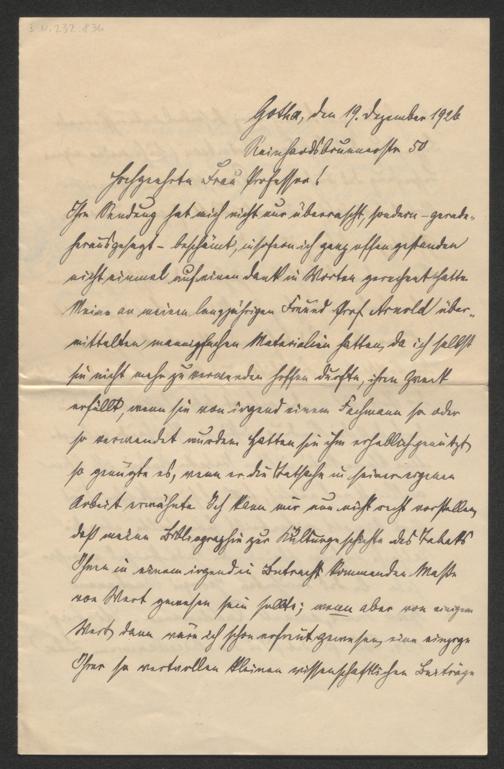 3.N.232.836
Gotha, den 19. Dezember 1926
Reinhardsbrunnerstr 50
Hochgeehrte Frau Professor!
Ihre Sendung hat mich nicht nur überrascht, sondern – gerade-
herausgesagt – beschämt, insofern ich ganz offen gestanden
nicht einmal auf einen Dank in Worten gerechnet hatte
Meine an meinen langjährigen Freund Prof. Arnold über-
mittelten Materialien hatten, da ich selbst
sie nicht mehr zu verwenden hoffen durfte, ihren Zweck
erfüllt, wenn sie von irgend einem Fachmann so oder
so verwendet wurden. Hatten sie ihm erheblich genützt,
so genügte es, wenn er die Tatsache in seiner eigenen
Arbeit erwähnte. Ich kann mir nun nicht recht vorstellen,
daß meine Bibliographie zur Kulturgeschichte des Tabaks
Ihnen in einem irgend in Betracht kommenden Maße
von Wert gewesen sein sollte; wenn aber von einigem
Wert, dann wäre ich schon erfreut gewesen, eine einzige
Ihrer so wertvollen kleinen wissenschaftlichen Beiträge